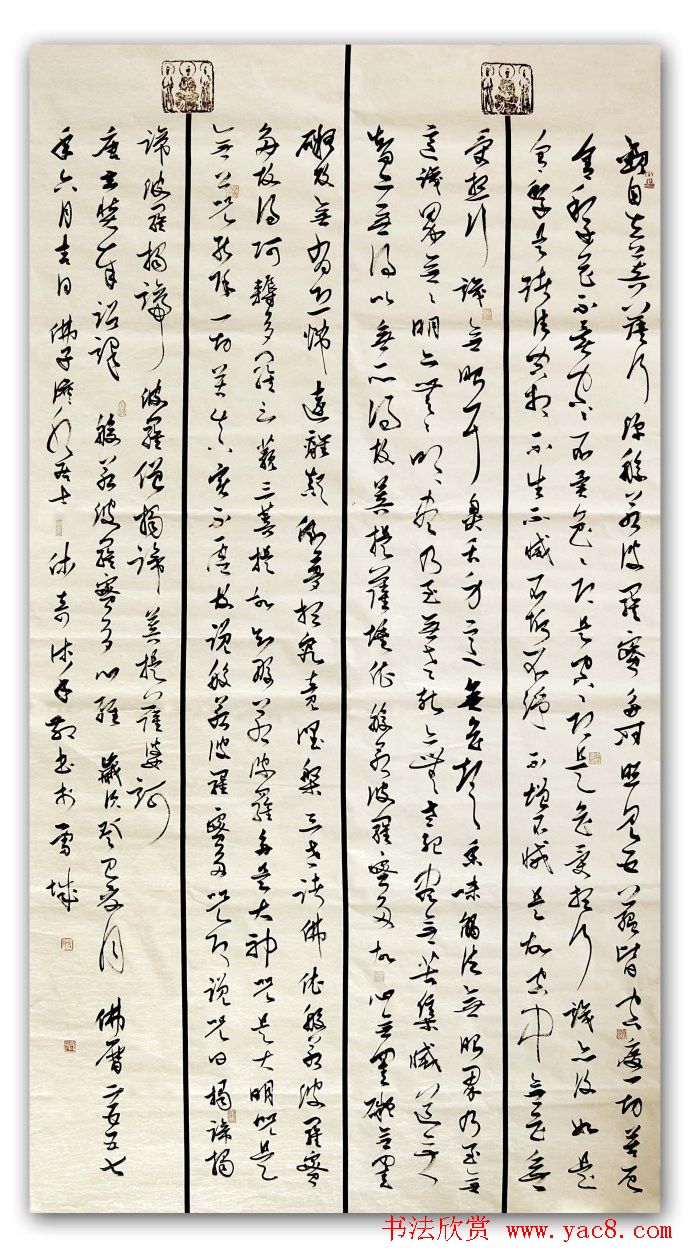 观自在菩萨行深般若波罗蜜多时照见五蕴皆空度一切苦厄
舍利子色不异空空不异色色即是空空即是色受想行识亦复如是
舍利子是诸法空相不生不灭不垢不净不增不减是故空中无色无
受想行识无眼耳鼻舌身意无色声香味触法无眼界乃至无
意识界无无明亦无无明尽乃至无老死亦无老死尽无苦集灭道无
智亦无得以无所得故菩提萨埵依般若波罗蜜多故心无罣碍无罣
碍故无有恐怖远离颠倒梦想究竟涅槃三世诸佛依般若波罗蜜
多故得阿耨多罗三藐三菩提故知般若波罗蜜多是大神咒是大明咒是
无上咒能除一切苦真实不虚故说般若波罗蜜多咒即说咒曰揭谛揭
谛波罗揭谛 波罗僧揭谛 菩提萨婆诃
唐玄奘奉诏译 般若波罗蜜多心经 岁次癸巳 月 佛历二五五七
年六月吉日佛子 居士 敬书于 城
书法欣赏 www.yac8.com